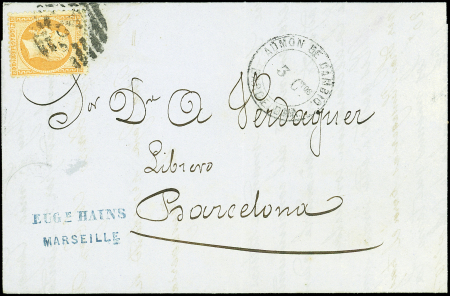 ADMON DE CAMBIO
3 Cts
Sor Dn A Verdaguer
Librero
Barcelona
EUGE HAINS
MARSEILLE